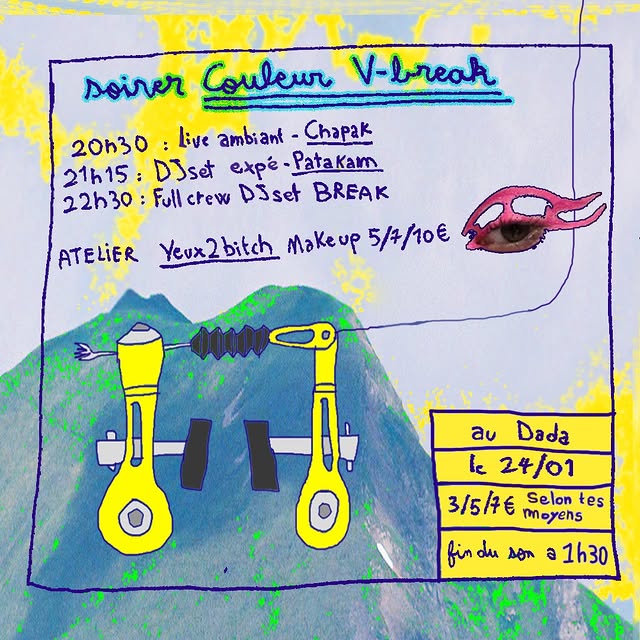 soirer Couleur V-break
20h30 : Live ambiant - Chapak
21h15 : DJset expé - Patakam
22h30 : Full crew DJset BREAK
ATELIER Yeux2bitch Makeup 5/7/10€
au Dada
le 24/01
3/5/7€ Selon tes
moyens
fin du son a 1h30